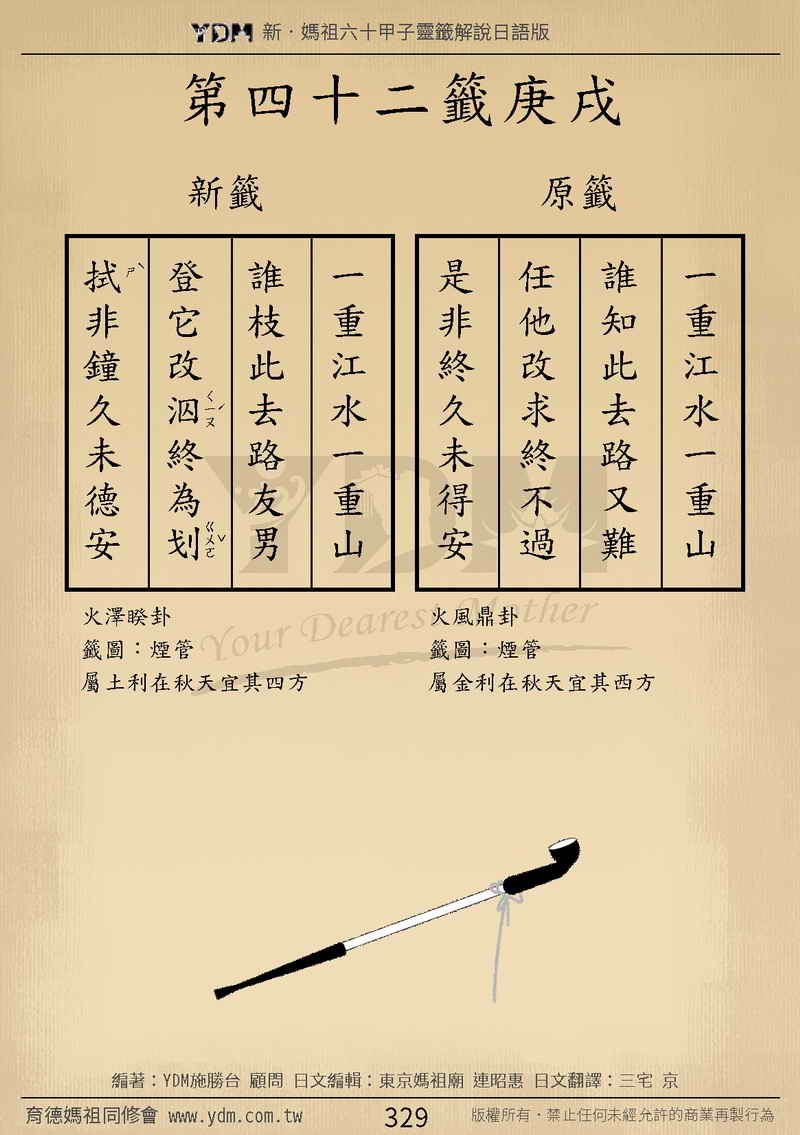 YDM 新·媽祖六十甲子靈籤解說日語版
第四十二籤庚戌
原籤
一重江水一重山
誰知此去路又難
任他改求終不過
是非終久未得安
火風鼎卦
籤圖：煙管
屬金利在秋天宜其西方
新籤
一重江水一重山
誰枝此去路友男
登它改泅ㄑㄧㄡˊ終為划ㄍㄨㄛˇ
拭ㄕˋ非鐘久未德安
火澤睽卦
籤圖：煙管
屬土利在秋天宜其四方
YDM
Your Dearest Mother
編著：YDM施勝台 顧問 日文編輯：東京媽祖廟 連昭惠 日文翻譯：三宅 京
育德媽祖同修會 www.ydm.com.tw
329
版權所有·禁止任何未經允許的商業再製行為